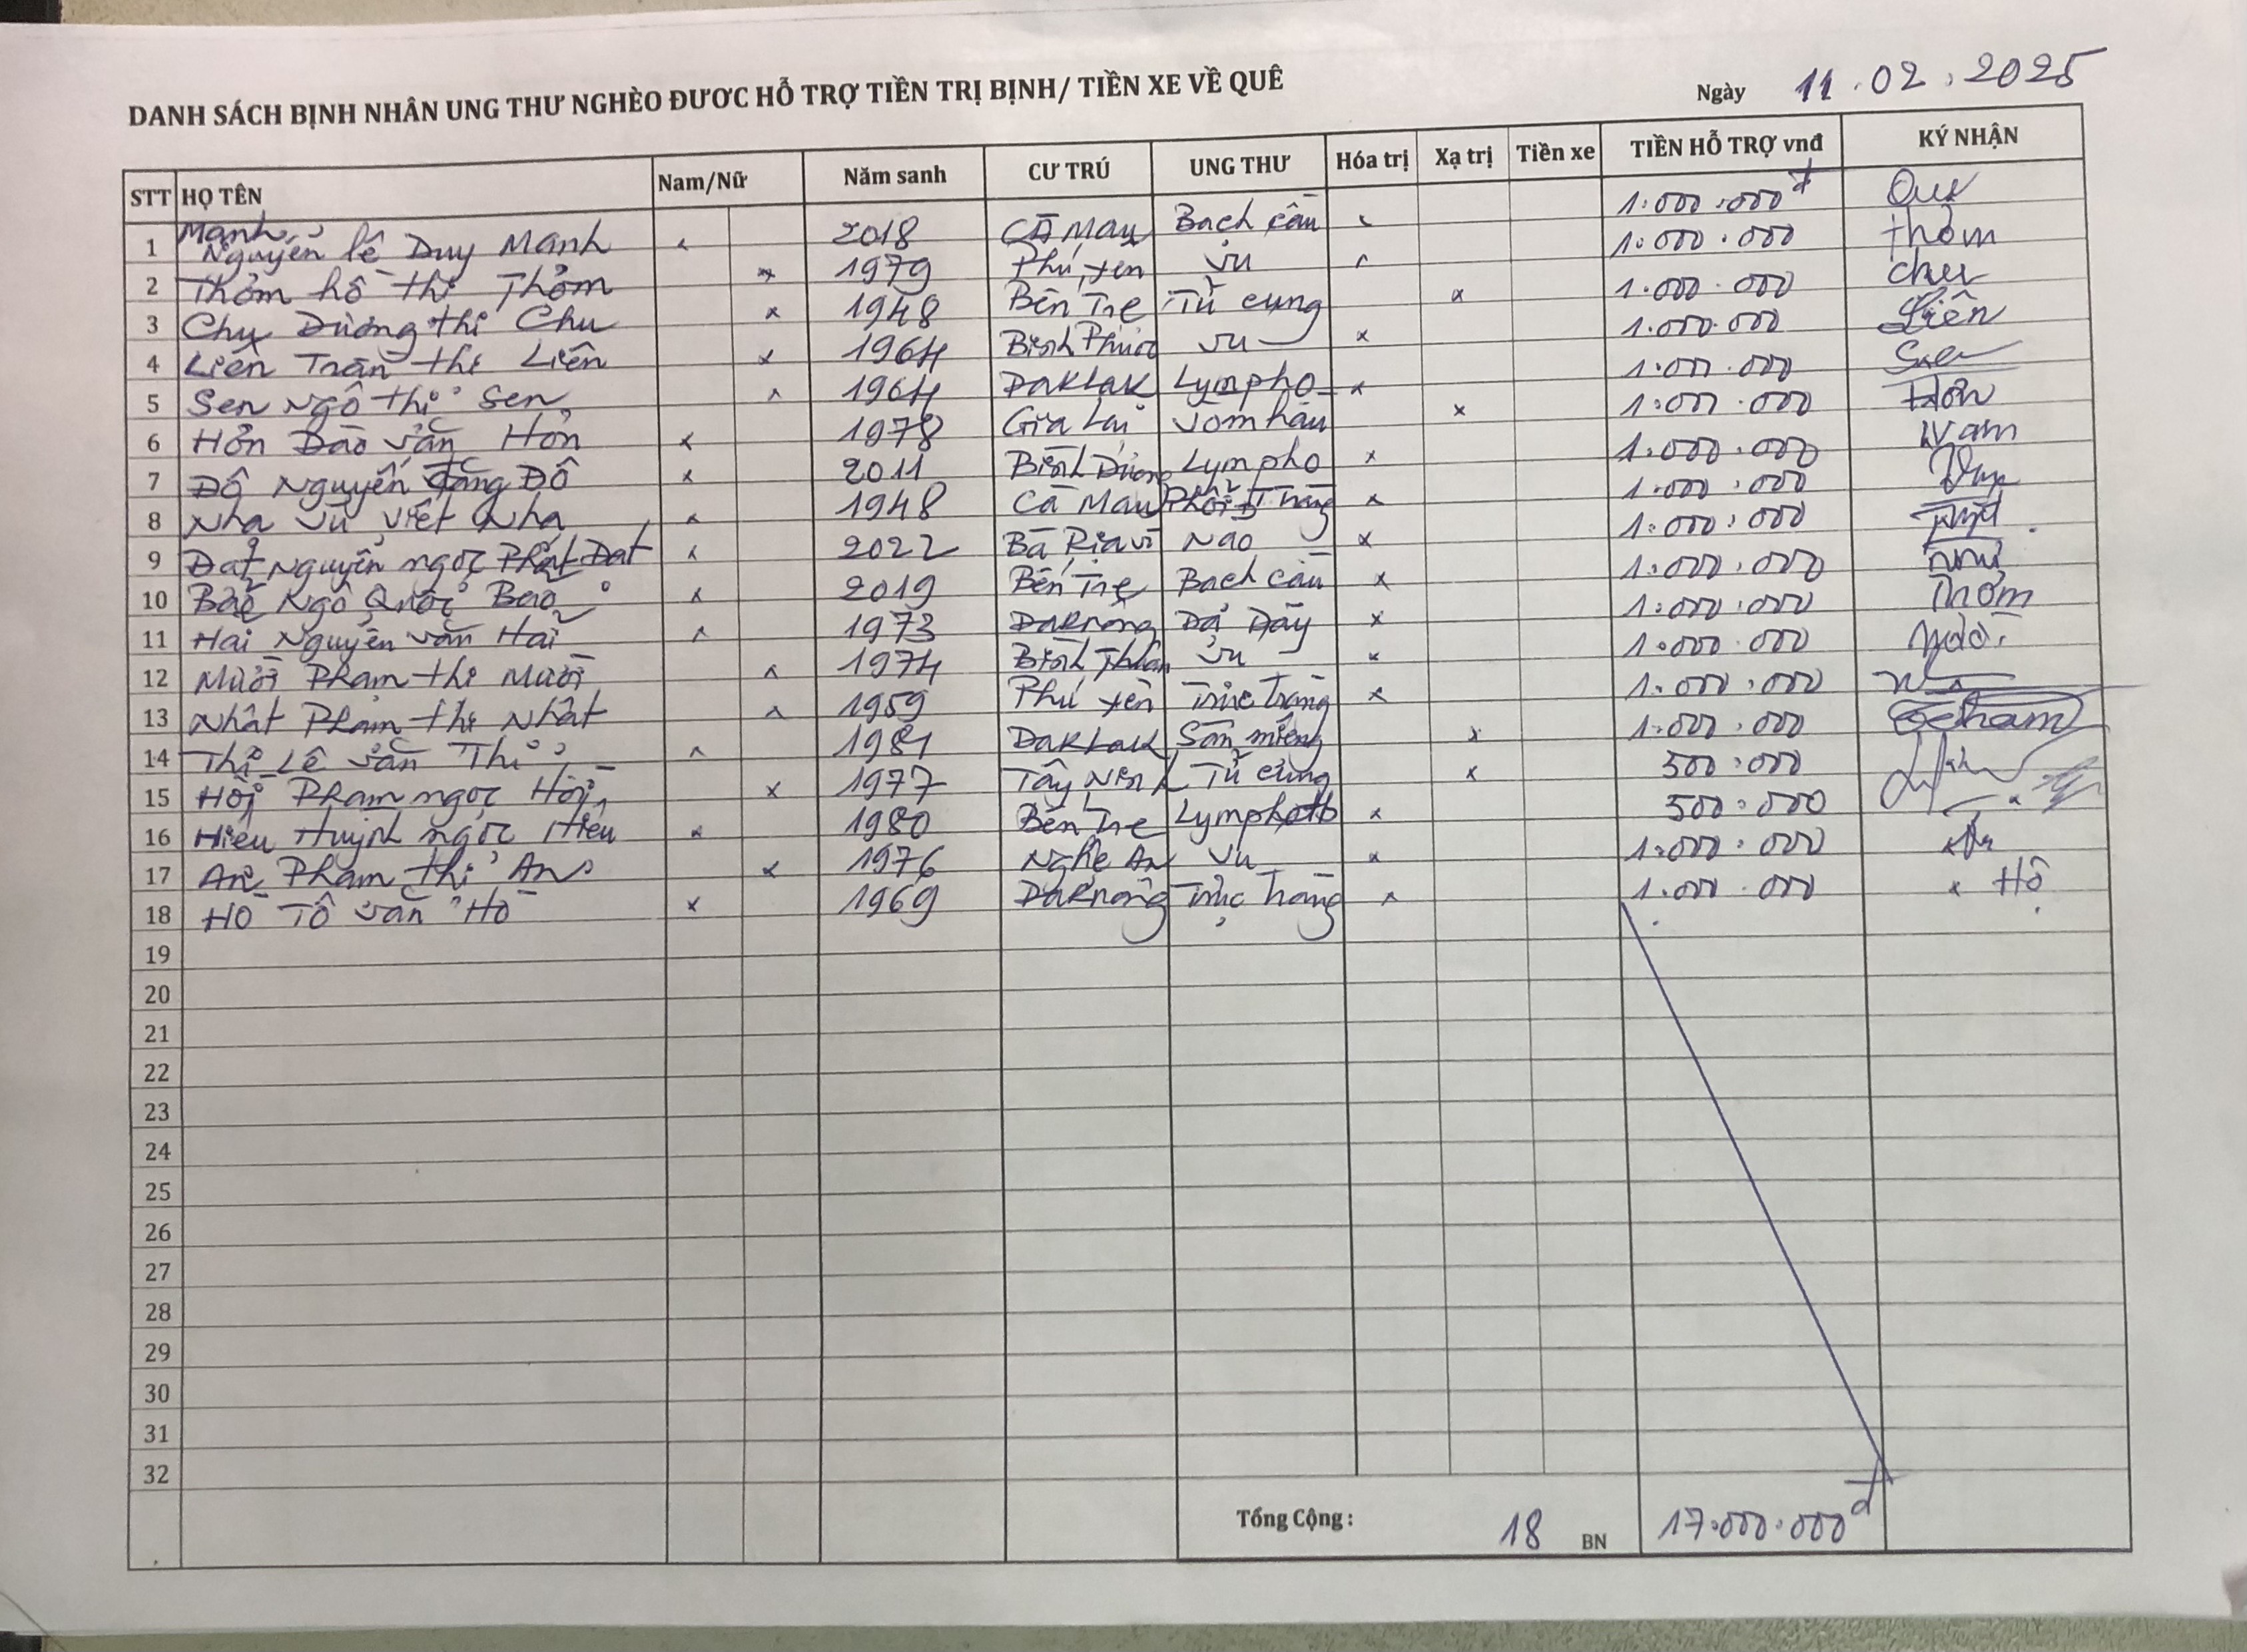 DANH SÁCH BỊNH NHÂN UNG THƯ NGHÈO ĐƯƠC HỖ TRỢ TIỀN TRỊ BỊNH/ TIỀN XE VỀ QUÊ
Ngày 11.02.2025
STT HỌ TÊN Nam/Nữ Năm sanh CƯ TRÚ UNG THƯ Hóa trị Xạ trị Tiền xe TIỀN HỖ TRỢ vnđ KÝ NHẬN
1 Mạnh Nguyễn lê Duy Mạnh x 2018 Cà Mau Bạch cầu x 1.000.000đ
2 Thỏm hồ thị Thỏm x 1979 Phú yên vú x 1.000.000 Thỏm
3 Chu Dương thị Chu x 1948 Bến Tre Tử cung x 1.000.000 chu
4 Liên Trần thị Liên x 1964 Bình Phước vú x 1.000.000 Liên
5 Sen Ngô thị Sen x 1964 DakLak Lympho x 1.000.000 Sen
6 Hỏn Đào văn Hỏn x 1978 Gia Lai vòm hầu x 1.000.000
7 Độ Nguyễn Đăng Độ x 2011 Bình Dương Lympho x 1.000.000 Nam
8 Nhạ Vũ Viết Nhạ x 1948 Cà Mau Phổi x 1.000.000
9 Đạt Nguyễn ngọc Phát Đạt x 2022 Bà Rịa Não x 1.000.000
10 Bảo Ngô Quốc Bảo x 2019 Bến Tre Bạch cầu x 1.000.000
11 Hai Nguyễn văn Hai x 1973 Daknông Dạ Dày x 1.000.000 Thơm
12 Mười Phạm thị Mười x 1974 Bình Thuận vú x 1.000.000 Mười
13 Nhật Phạm thị Nhật x 1959 Phú yên Trực Tràng x 1.000.000
14 Thi Lê văn Thi x 1981 DakLak Sàn miệng x 1.000.000
15 Phạm ngọc x 1977 Tây Ninh Tử cung x 500.000
16 Hiếu Huỳnh ngọc Hiếu x 1980 Bến Tre x 500.000
17 An Phạm thị An x 1976 Nghệ An vú x 1.000.000
18 Hồ Tô văn Hồ x 1969 Daknông Trực Tràng x 1.000.000 x Hồ
19
20
21
22
23
24
25
26
27
28
29
30
31
32
Tổng Cộng : 18 BN 17.000.000đ